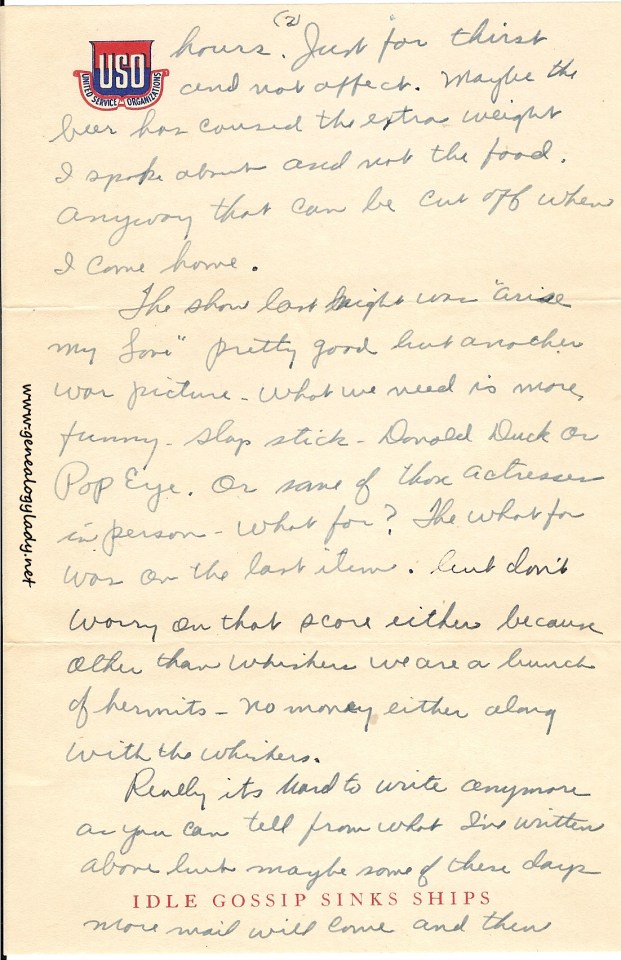 (2)
USO
UNITED SERVICE ORGANIZATIONS
hours. Just for thirst
and not affect. Maybe the
beer has caused the extra weight
I spoke about and not the food.
Anyway that can be cut off when
I come home.
The show last night was "Arise
my Love" pretty good but another
war picture - What we need is more,
funny - slap stick - Donald Duck or
Pop Eye. Or some of those actresses
in person - What for? The what for
was on the last item. but don't
worry on that score either because
other than whiskers we are a bunch
of hermits - no money either along
with the whiskers.
Really its hard to write anymore
as you can tell from what I've written
above but maybe some of these days
IDLE GOSSIP SINKS SHIPS
more mail will come and then
www.genealogylady.net